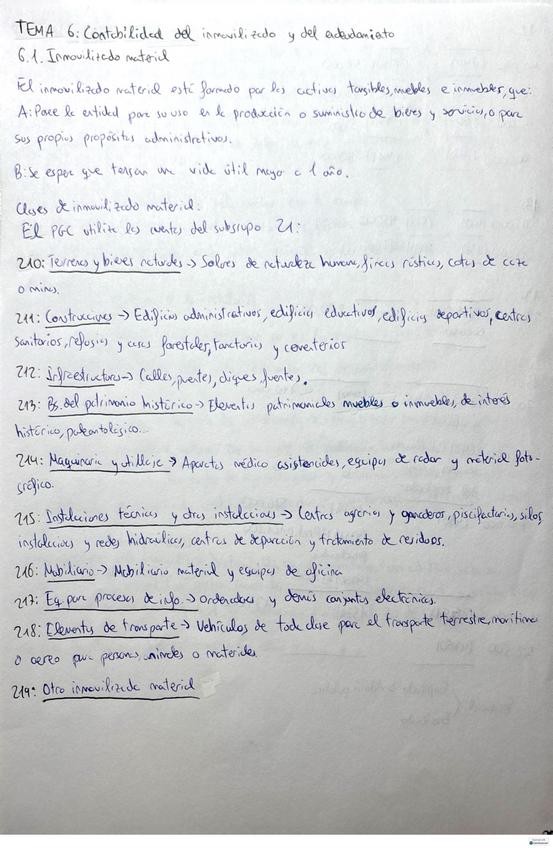 TEMA 6: Contabilidad del inmovilizado y del endeudamiento
6.1. Inmovilizado material
El inmovilizado material está formado por los activos tangibles, muebles e inmuebles, que:
A: Posee la entidad para su uso en la producción o suministro de bienes y servicios, o para
sus propios propósitos administrativos.
B: Se espera que tengan una vida útil mayor a 1 año.
Clases de inmovilizado material:
El PGC utiliza las cuentas del subgrupo 21:
210: Terrenos y bienes naturales → Solares de naturaleza humana, fincas rústicas, cotos de caza
o minas.
211: Construcciones → Edificios administrativos, edificios educativos, edificios deportivos, centros
sanitarios, refugios y casas forestales, tanatorios y cementerios
212: Infraestructuras → Calles, puentes, diques, fuentes.
213: Bs. del patrimonio histórico → Elementos patrimoniales muebles o inmuebles, de interés
histórico, paleontológico...
214: Maquinaria y utillaje → Aparatos médico asistenciales, equipos de radar y material foto-
gráfico.
215: Instalaciones técnicas y otras instalaciones → Centros agrarios y ganaderos, piscifactorías, silos,
instalaciones y redes hidraulicas, centros de depuración y tratamiento de residuos.
216: Mobiliario → Mobiliario material y equipos de oficina
217: Eq. para procesos de info. → Ordenadores y demás conjuntos electrónicos.
218: Elementos de transporte → Vehículos de toda clase para el transporte terrestre, marítimo
o aereo para personas, animales o materiales.
219: Otro inmovilizado material